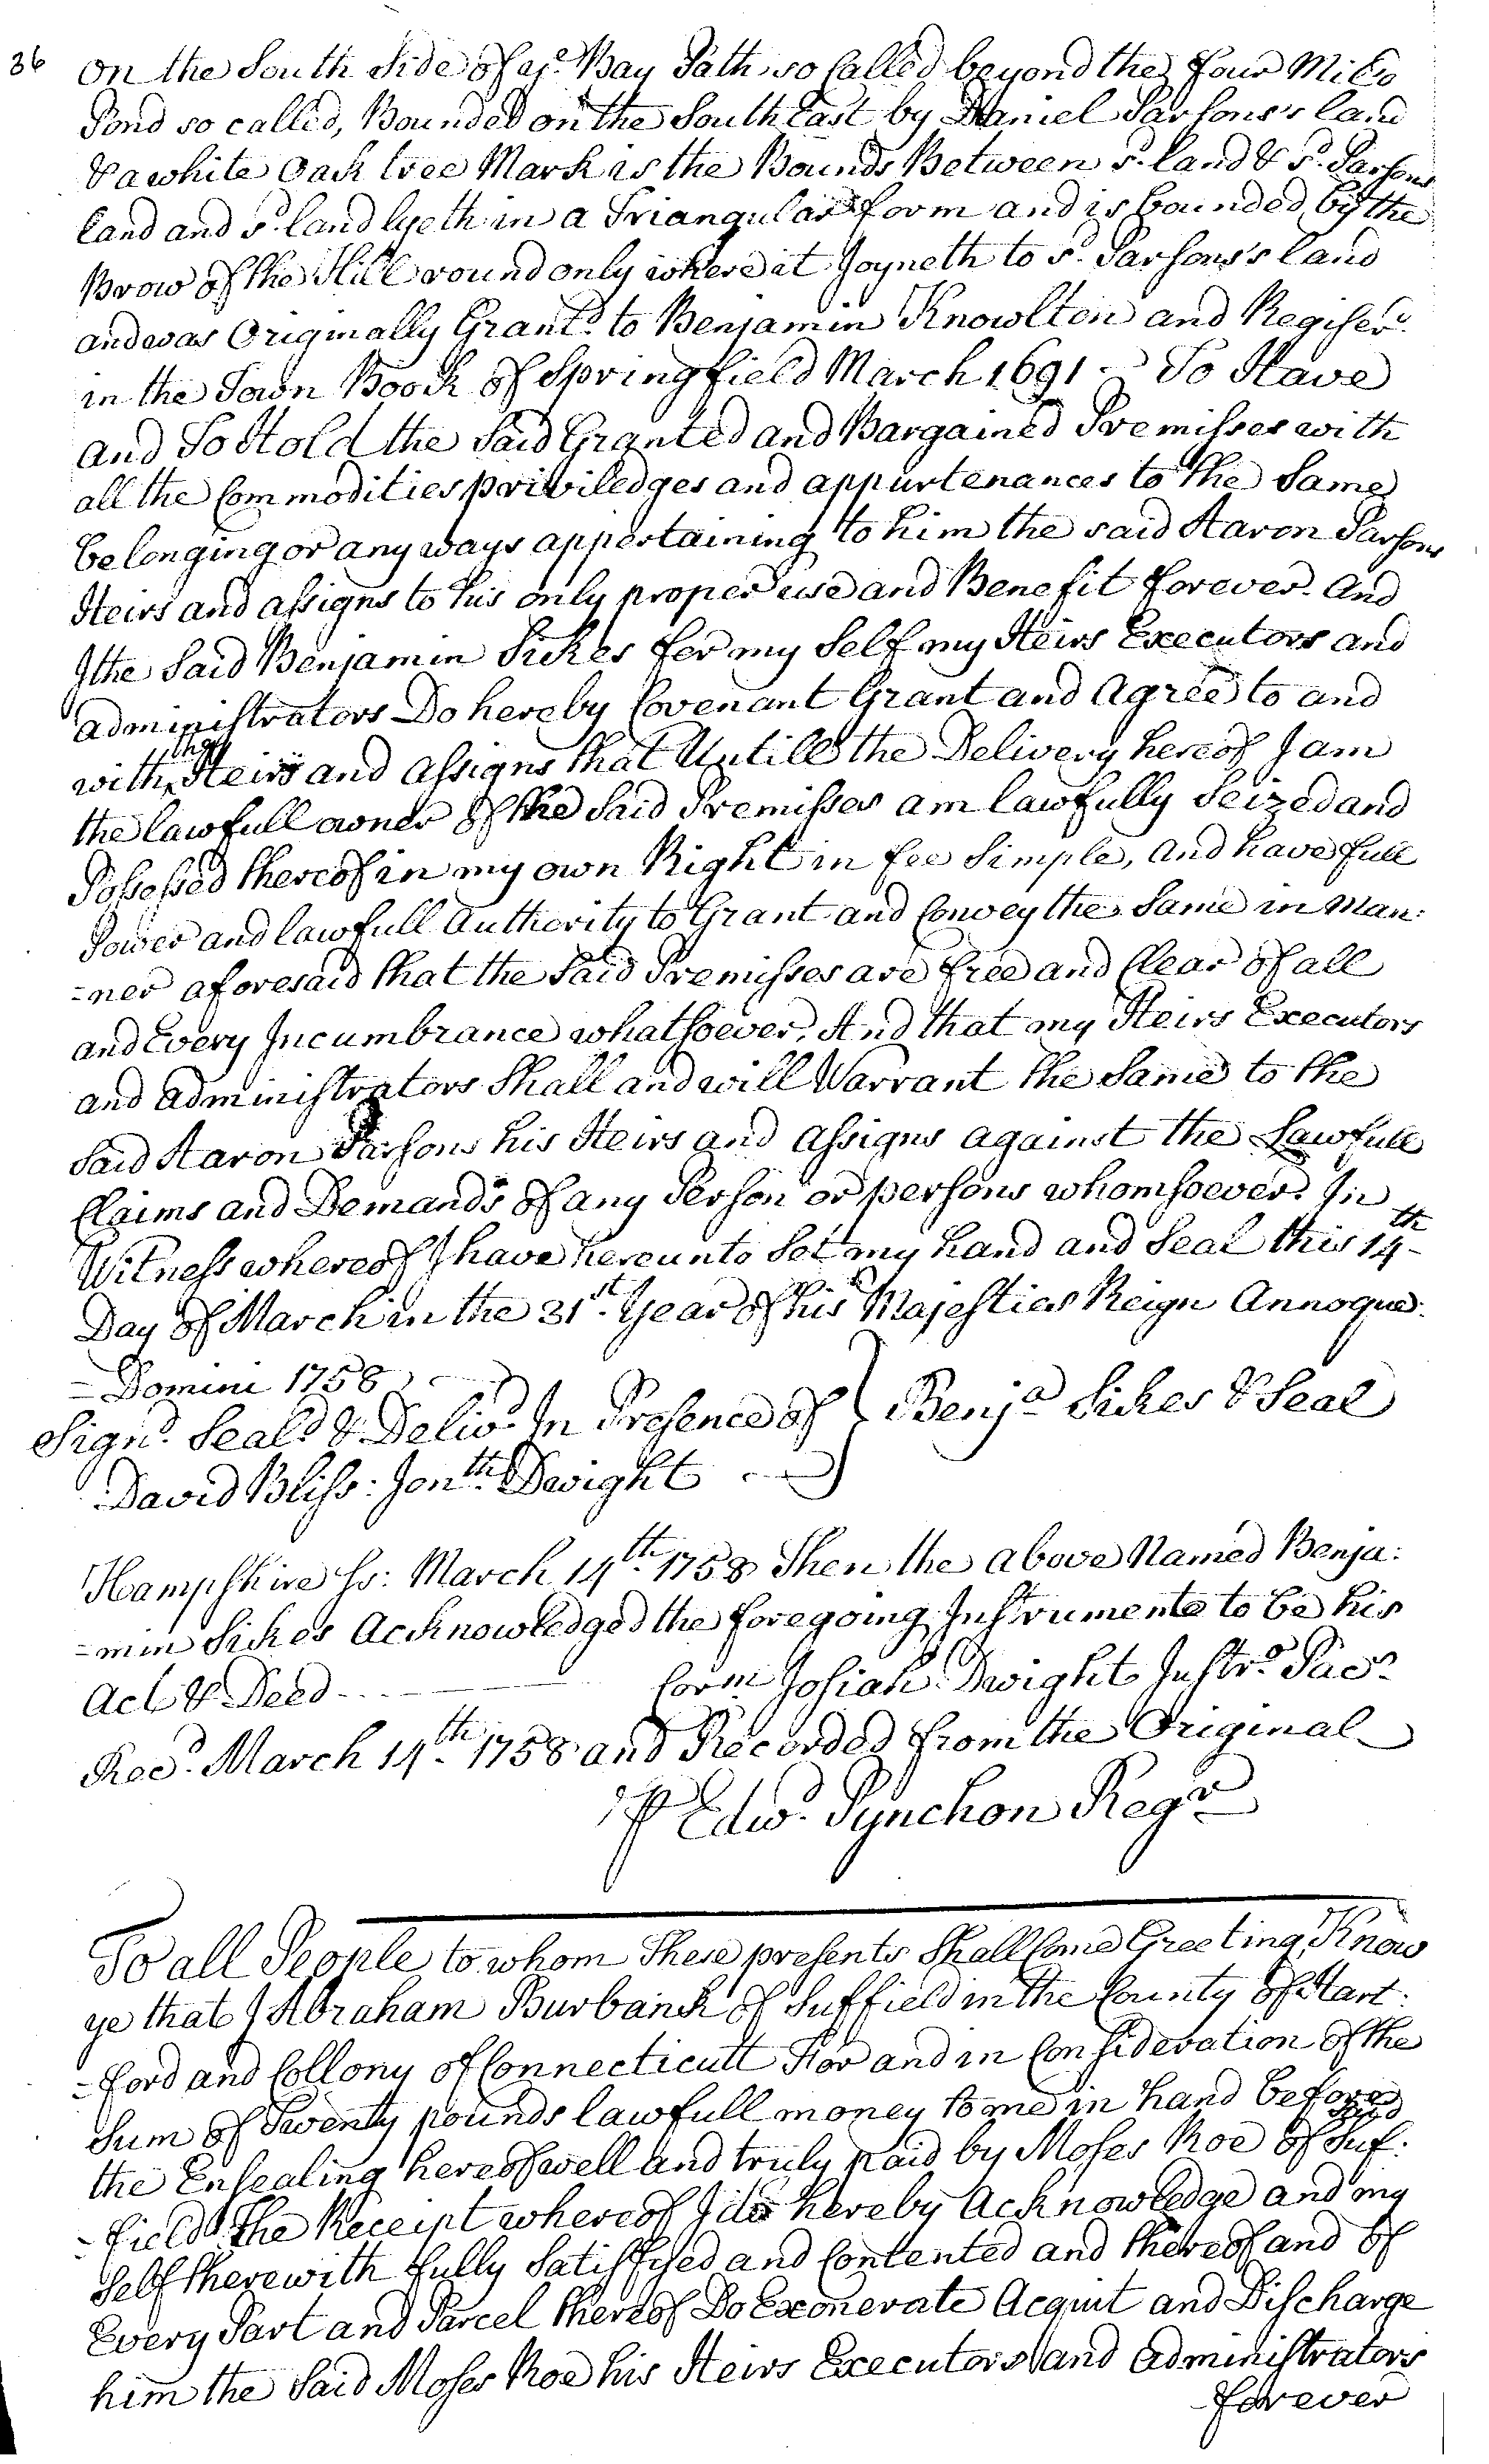 36
on the South Side of ye. Bay Path so Called beyond the four Mile
Pond so called, Bounded on the South East by Daniel Parsons's land
& a white Oak tree Mark is the Bounds Between sd. land & sd. Parsons
land and sd. land lyeth in a Triangular form and is bounded by the
Brow of the Hill round only where it Joyneth to sd. Parsons's land
and was Originally Grantd. to Benjamin Knowlton and Regiserd.
in the Town Book of Springfield March 1691 - To Have
and To Hold the Said Granted and Bargained Premisses with
all the Commodities priviledges and appurtenances to the Same
belonging or any ways appertaining to him the said Aaron Parsons
Heirs and assigns to his only proper use and Benefit forever. And
I the Said Benjamin Sikes for my Self my Heirs Executors and
administrators Do hereby Covenant Grant and Agree to and
with his Heirs and assigns that Untill the Delivery hereof I am
the lawfull owner of the Said Premisses am lawfully Seized and
Possessed thereof in my own Right in fee Simple, And have full
Power and lawfull Authority to Grant and Convey the Same in Man:
=ner aforesaid that the Said Premisses are free and Clear of all
and Every Incumbrance whatsoever, And that my Heirs Executors
and administrators Shall and will Warrant the Same to the
Said Aaron Parsons his Heirs and assigns against the Lawfull
Claims and Demands of any Person or persons whomsoever. In
Witness whereof I have hereunto Set my hand and Seal this 14th
Day of March in the 31st. Year of his Majesties Reign Annoque:
=Domini 1758
Signd. Seald. & Delivd. In Presence of } Benja Sikes & Seal
David Bliss: Jonth. Dwight
Hampshire Ss: March 14th. 1758 Then the above Named Benja:
=min Sikes Acknowledged the foregoing Instrument to be his
Act & Deed - Corm Josiah Dwight Justr. Pacs
Recd. March 14th. 1758 and Recorded from the Original
⅌ Edwd. Pynchon Regr
To all People to whom These presents Shall Come Greeting, Know
ye that I Abraham Burbank of Suffield in the County of Hart:
=ford and Collony of Connecticutt For and in Consideration of the
Sum of Twenty pounds lawfull money to me in hand before
the Ensealing hereof well and truly paid by Moses Roe of said Suf:
=field The Receipt whereof I do hereby Acknowledge and my
Self therewith fully Satisfyed and Contented and thereof and of
Every Part and Parcel thereof Do Exonerate Acquit and Discharge
him the Said Moses Roe his Heirs Executors and administrators
forever